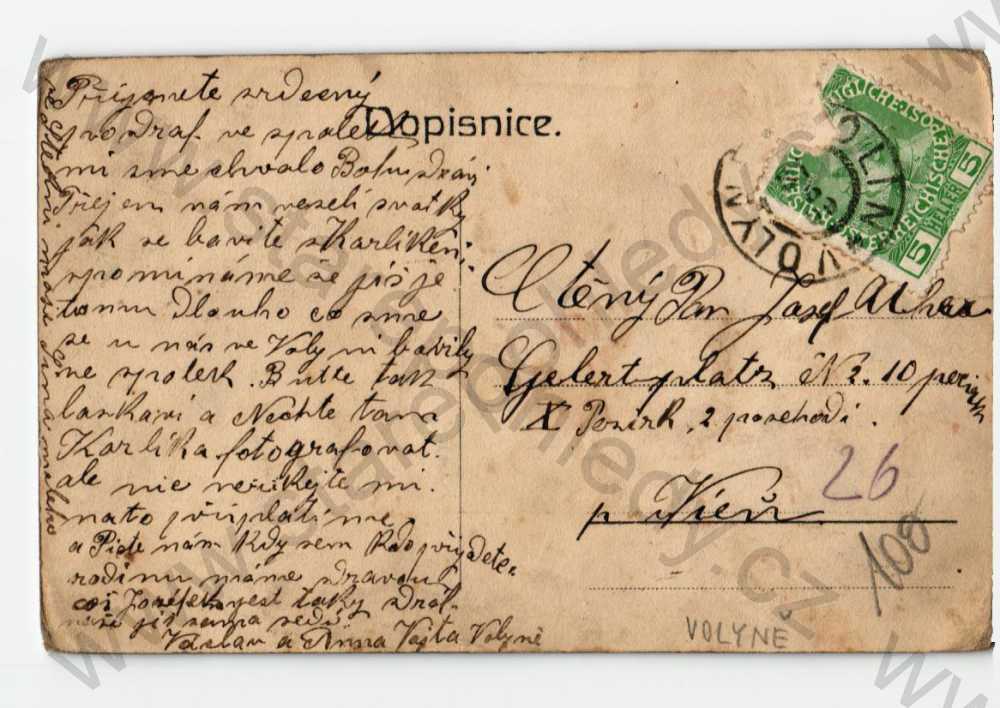 Dopisnice.
Přijmete srdecný
pozdraf. ve spolek
mi sme chvalo Bohu zdrávi
Přejem nám veselí svatky
jak se bavite s Karlikem
spomínáme že jis je
tomu Dlouho co sme
se u nás ve Volyni bavily
sme spolek. Butte tak
laskaví a Nechte tam
Karlika fotografovat.
ale nic neřikejte mi
nato připlatíme
a Piste nám kdy sem Rdo přijdete.
rodinu máme zdravou
co i Josefek jest taky zdráf
naše jiš sama sedí
Vaslav a Anna Vojta Volyně
VOLYNĚ
VOLIN
5 HELLER 5
Ctěný Pan Josef
Gelert platz No. 10 peri
X Pezirk, 2 poschodi.
p Vieň
26
100
VOLYNĚ
www.starepohledy.cz